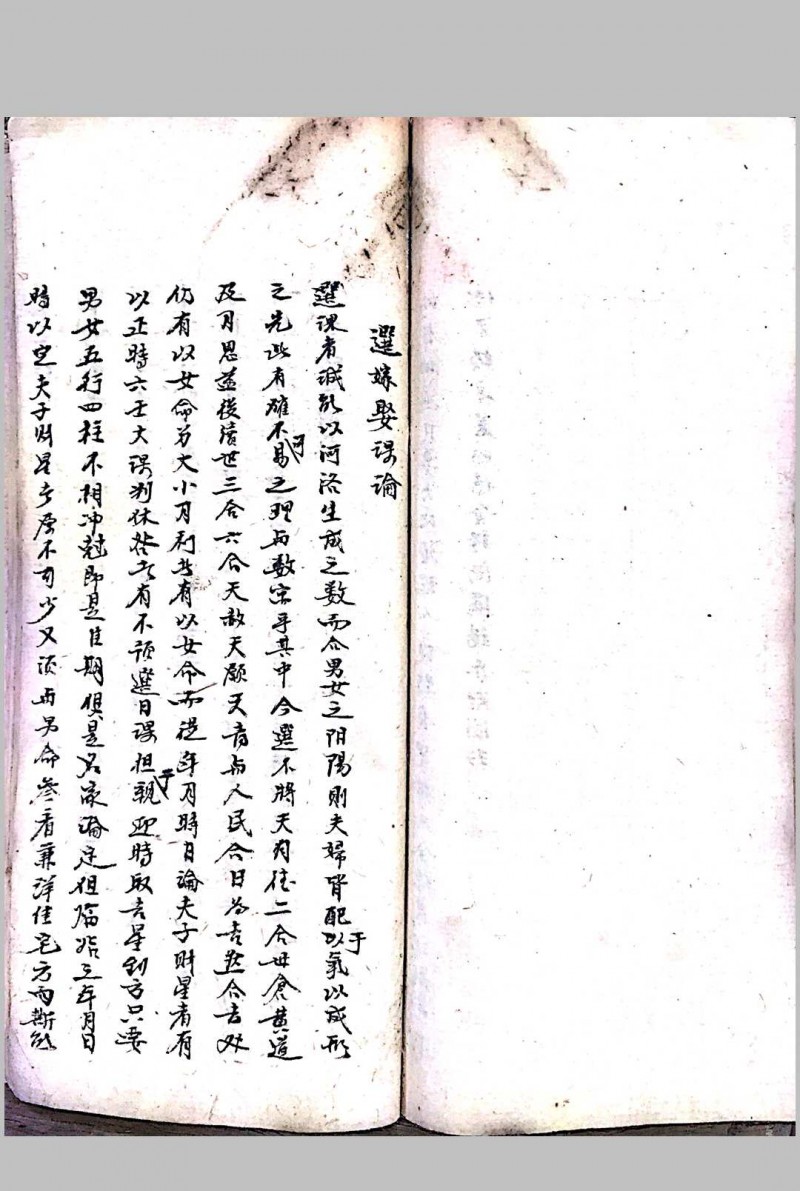 選嫁娶課論
選課者誠能以河洛生成之數而合男女之阴陽則夫婦皆配以于氣以成形
之先此有確不可易之理而数寓乎其中今選不將天月德二合母倉黄道
及月恩益後續世三合六合天赦天願天喜与人民合日為吉
仍有以女命為大小月利者有以女命而從年月時日論夫子財星者有
以正時六壬大課判休咎者有不預選日課但于親迎時取吉星到方只要
男女五行四柱不相冲尅即是佳期俱是名家論定但年月日
時以定夫子財星者原不可少又須与男命參看兼詳住宅方向斯能